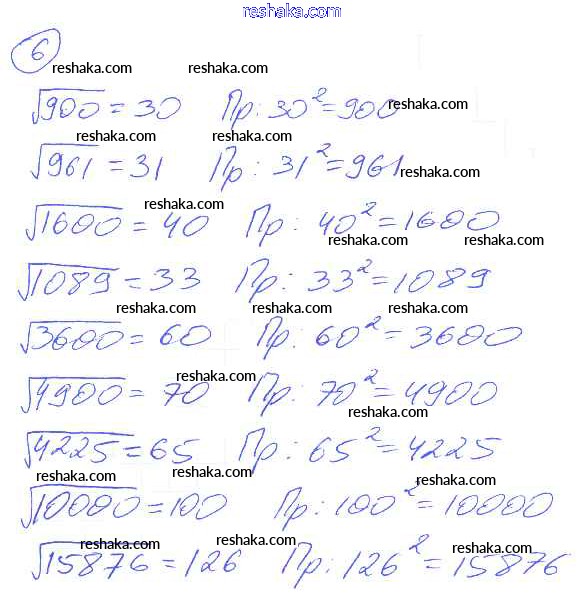 reshaka.com
6
reshaka.com reshaka.com
√900 = 30 Пр: 30² = 900
reshaka.com
reshaka.com reshaka.com
√961 = 31 Пр: 31² = 961
reshaka.com
reshaka.com
√1600 = 40 Пр: 40² = 1600
reshaka.com reshaka.com
reshaka.com
√1089 = 33 Пр: 33² = 1089
reshaka.com reshaka.com reshaka.com
√3600 = 60 Пр: 60² = 3600
reshaka.com
√4900 = 70 Пр: 70² = 4900
reshaka.com
√4225 = 65 Пр: 65² = 4225
reshaka.com reshaka.com
reshaka.com
√10000 = 100 Пр: 100² = 10000
reshaka.com reshaka.com reshaka.com
√15876 = 126 Пр: 126² = 15876
reshaka.com